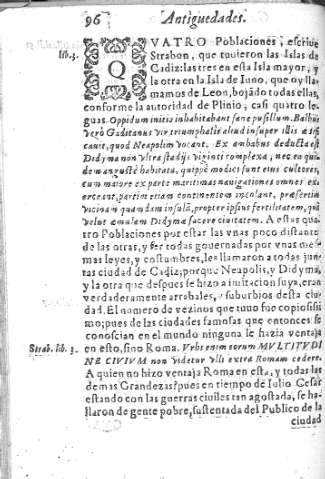 96 Antiguedades.
lib.3.
QVATRO Poblaciones, escriue
Strabon, que tuuieron las Islas de
Cadiz: las tres en esta Isla mayor, y
la otra en la Isla de Iuno, que oy lla-
mamos de Leon, bojãdo todas ellas,
conforme la autoridad de Plinio, casi quatro le-
guas. Oppidum initio inhabitabant sane pusillum. Balbus
verò Gaditanus vir triumphalis aliud insuper illis ædi
cauit, quod Neapolim vocant. Ex ambabus deducta est
Didyma non vltra stadijs viginti complexa, nec ea qui-
dem angustè habitata, quippè modici sunt eius cultores,
cum maiore ex parte maritimas nauigationes omnes ex
erceant, partim etiam continentem incolant, præsertim
vicinam quandam insulã, propter ipsius fertilitatem, quã
velut æmulam Didyma facere ciuitatem. A estas quatro
Poblaciones por estar las vnas poco distante
de las otras, y ser todas gouernadas por vnas mes-
mas leyes, y costumbres, les llamaron a todas jun-
tas ciudad de Cadiz; porque Neapolis, y Didyma,
y la otra que despues se hizo a imitacion suya, eran
verdaderamente arrabales, y suburbios desta ciu-
dad. El numero de vezinos que tuuo fue copiosissi
mo; pues de las ciudades famosas que entonces se
conoscian en el mundo ninguna le hazia ventaja
Strab. lib. 3.
en esto, sino Roma. Vrbs enim eorum MVLTITVDI
NE CIVIVM non videtur vlli extra Romam cedere.
A quien no hizo ventaja Roma en esta, y todas las
demas Grandezas? pues en tiempo de Iulio Cesar
estando con las guerras ciuiles tan agostada, se ha-
llaron de gente pobre, sustentada del Publico de la
ciudad